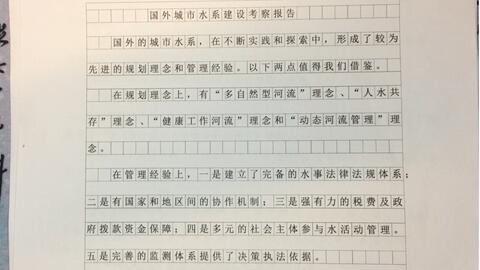 国外城市水系建设考察报告
国外的城市水系，在不断实践和探索中，形成了较为
先进的规划理念和管理经验。以下两点值得我们借鉴。
在规划理念上，有“多自然型河流”理念、“人水共
存”理念、“健康工作河流”理念和“动态河流管理”理
念。
在管理经验上，一是建立了完备的水事法律法规体系；
二是有国家和地区间的协作机制；三是强有力的税费及政
府拨款资金保障；四是多元的社会主体参与水活动管理。
五是完善的监测体系提供了决策执法依据。